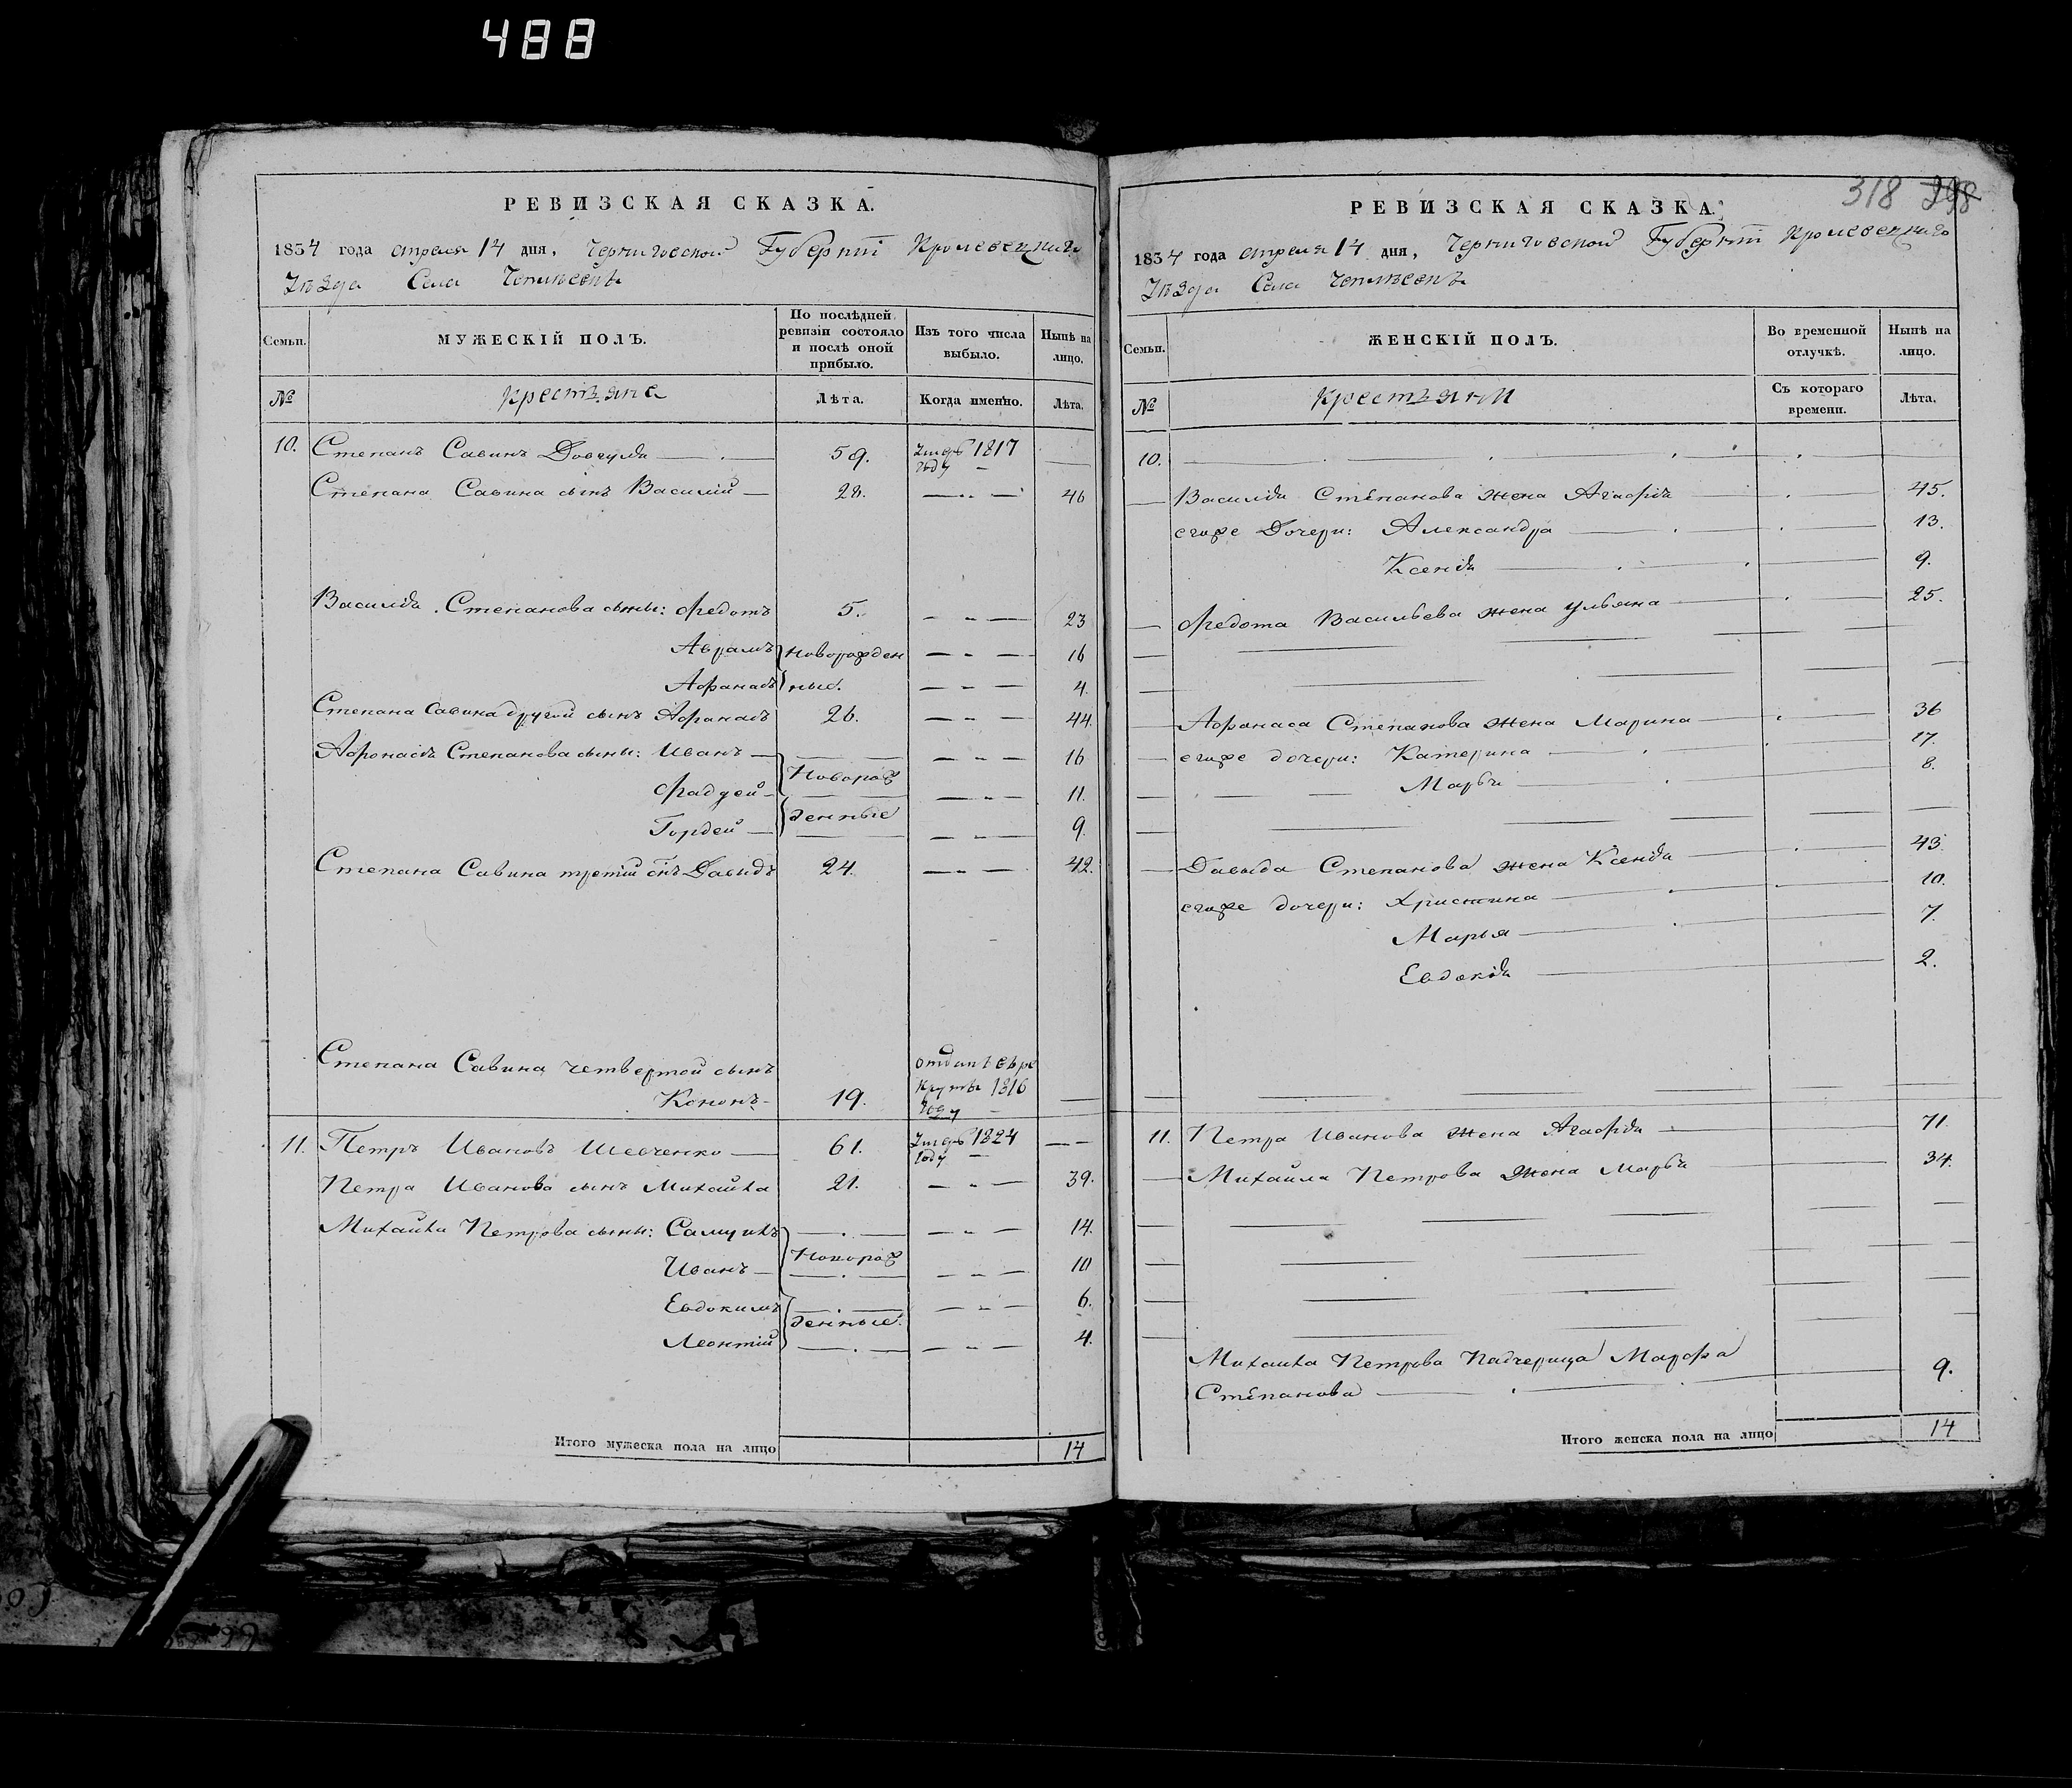 488
РЕВИЗСКАЯ СКАЗКА.
1834 года апреля 14 дня, Черниговской Губернiи Кролевецкаго
Уѣзда Села
Семьи.
МУЖЕСКIЙ ПОЛЪ.
По послѣдней ревизiи состояло и послѣ оной прибыло.
Изъ того числа выбыло.
Нынѣ на лицо.
№
Крестьяне
Лѣта.
Когда именно.
Лѣта.
10. Степанъ Савинъ 59. Умеръ 1817 году
Степана Савина сынъ Василiй 28. 46
Василiя Степанова сыны: Федотъ 5. 23
Аврамъ Новорожден 16
Афанасъ ные. 4.
Степана Савина другой сынъ Афанасъ 26. 44.
Афонасiя Степанова сыны: Иванъ 16
Новорож
Фаддей 11.
денные
Гордей 9.
Степана Савина третiй снъ Давидъ 24. 42.
Степана Савина четвертой сынъ
Кононъ 19. отданъ въ ре круты 1816 году
11. Петръ Ивановъ Шевченко 61. Умеръ 1824 году
Петра Иванова сынъ Михайла 21. 39.
Михайла Петрова сыны: Самуилъ 14.
Новорож
Иванъ 10
Евдокимъ 6.
денные.
Леонтiй 4.
Итого мужеска пола на лицо 14
318 298
РЕВИЗСКАЯ СКАЗКА.
1834 года апреля 14 дня, Черниговской Губернiи Кролевецкаго
Уѣзда Села
Семьи.
ЖЕНСКIЙ ПОЛЪ.
Во временной отлучкѣ.
Нынѣ на лицо.
№
Крестьянки
Съ котораго времени.
Лѣта.
10.
Василiя Степанова жена Агафiя 45.
егоже Дочери: Александра 13.
Ксенiя 9.
Федота Васильева жена Ульяна 25.
Афанаса Степанова жена Марина 36
егоже дочери: Катерина 17.
Марья 8.
Давыда Степанова жена Ксенiя 43
егоже дочери: Христина 10.
Марья 7.
Евдокiя 2.
11. Петра Иванова жена Агафiя 71.
Михайла Петрова Жена Марья 34.
Михайла Петрова Падчерица Марфа
Степанова 9.
Итого женска пола на лицо 14